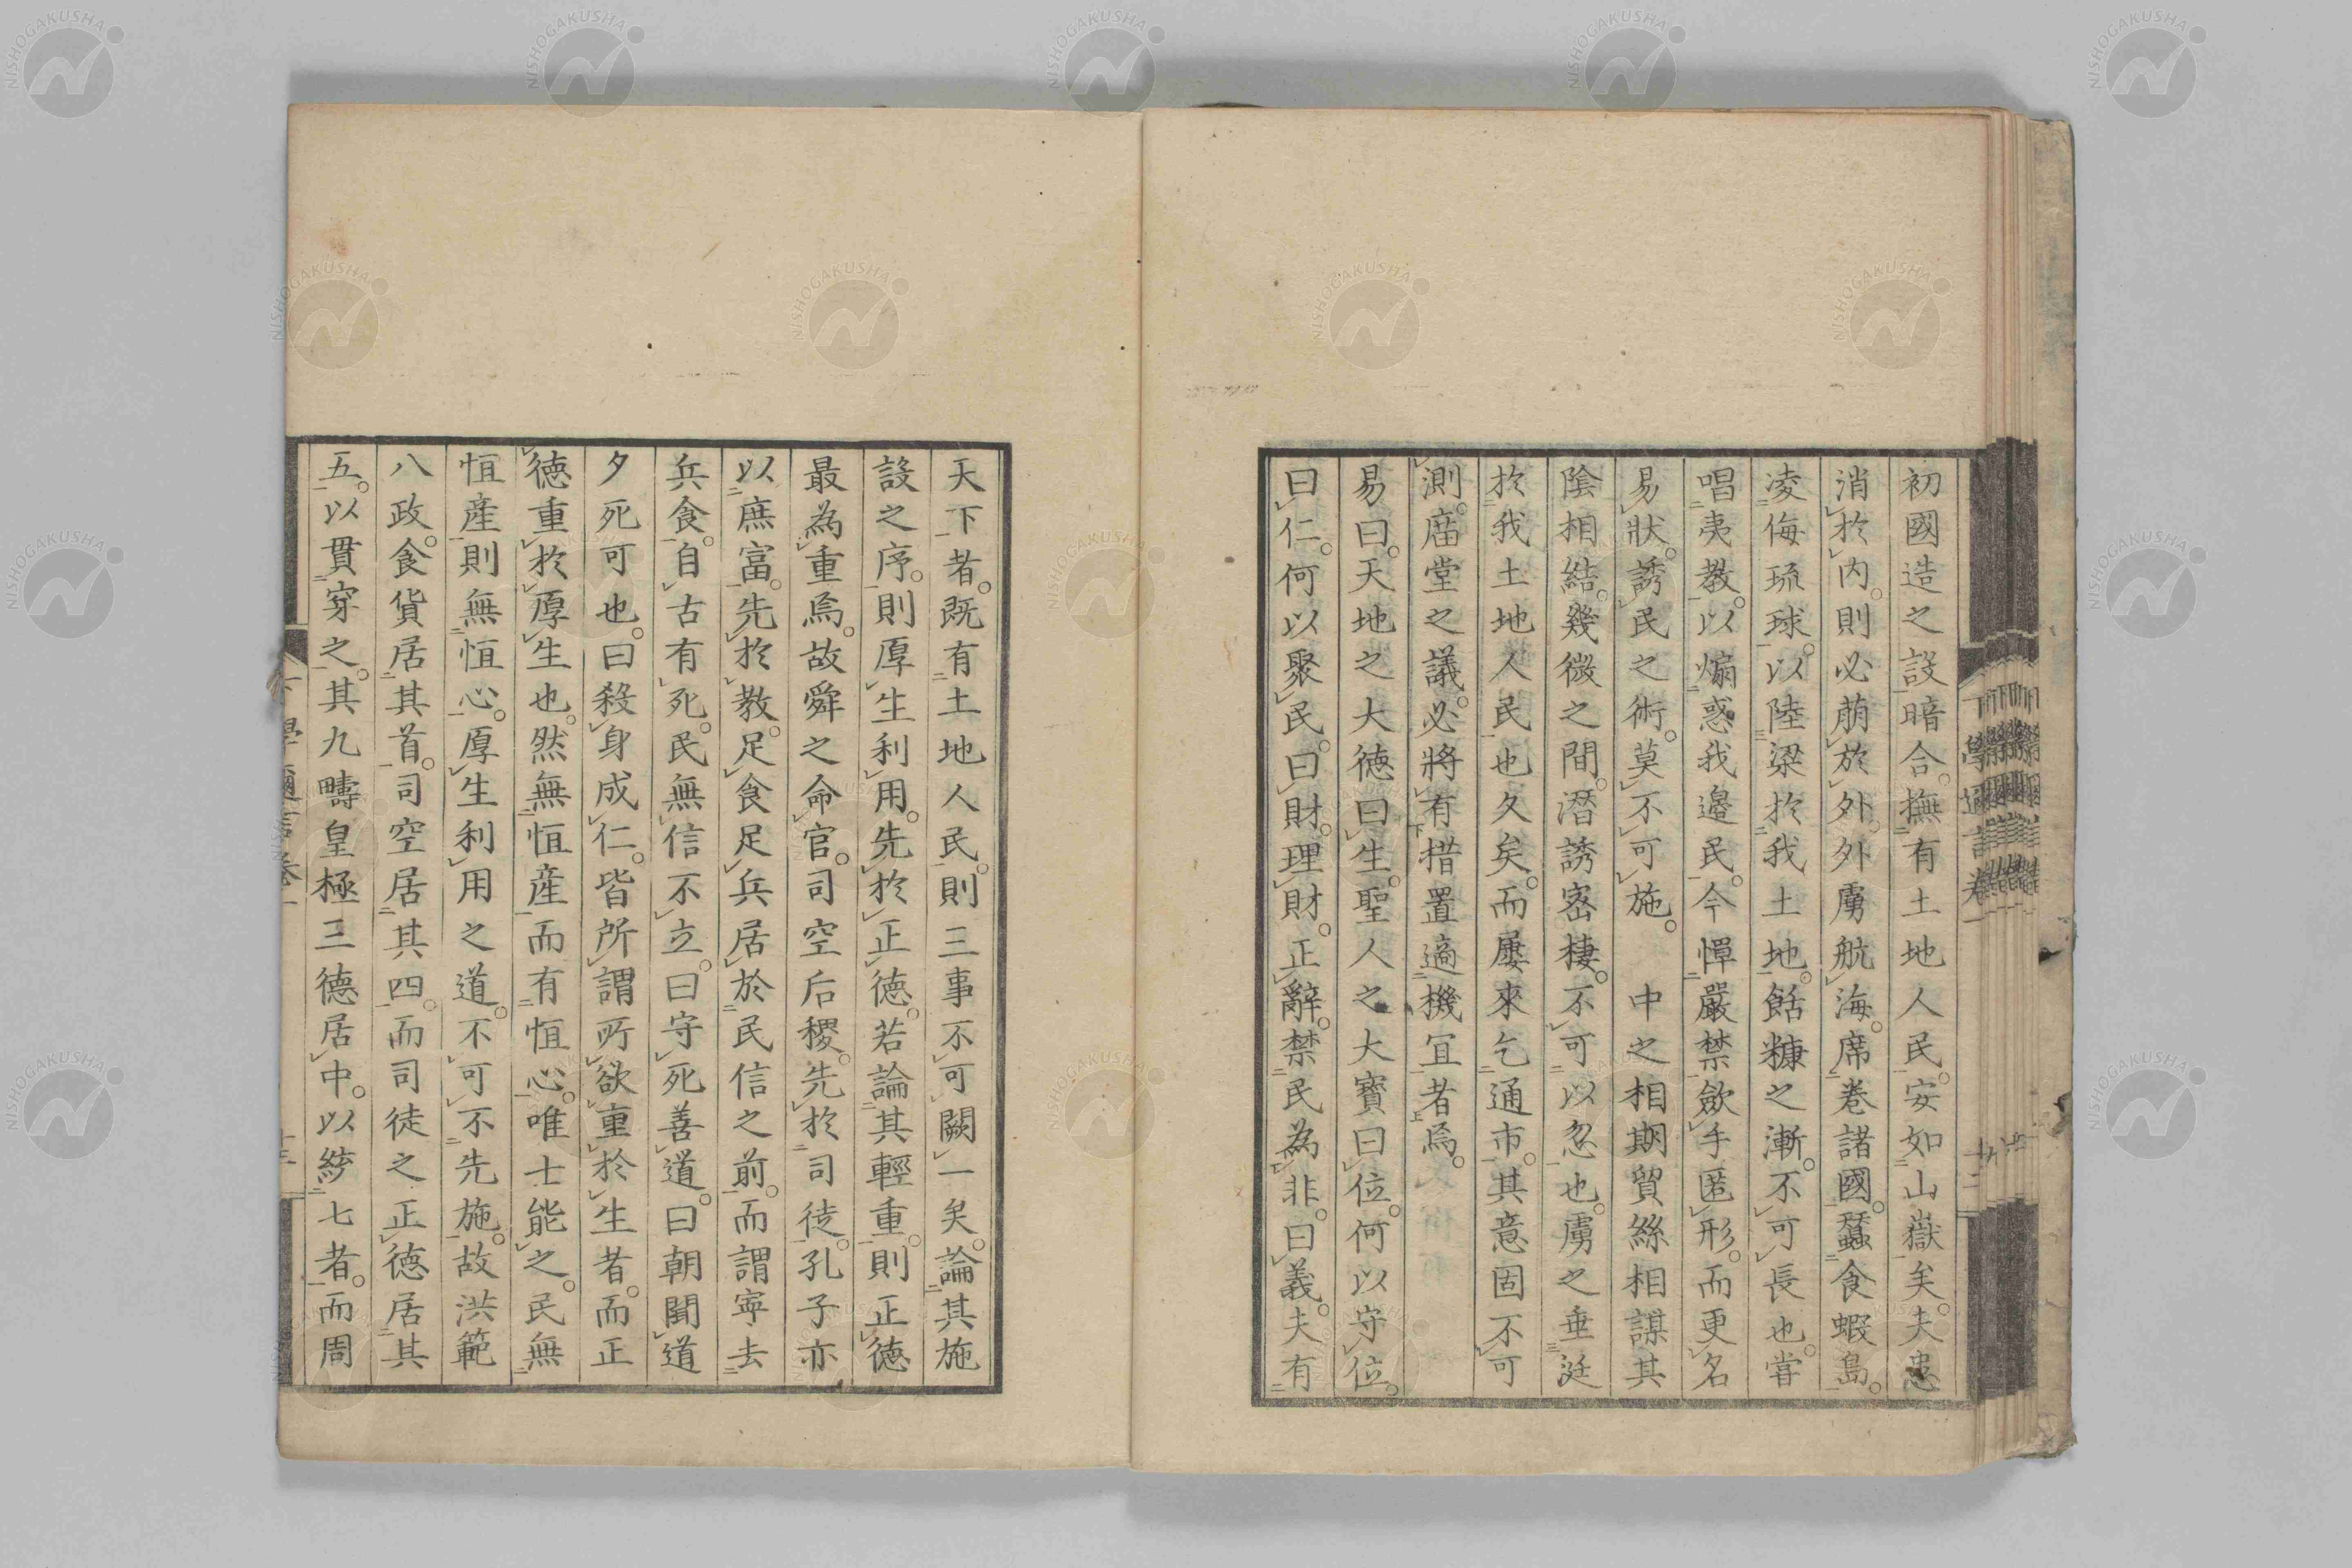 初國造之設暗合。撫有土地人民。安如山嶽矣。夫患
消於内。則必萠於外。外虜航海。席卷諸國。蠶食蝦島。
凌侮琉球。以陸梁於我土地。餂糠之漸。不可長也。甞
唱夷教。以煽惑我邊民。今憚嚴禁。斂手匿形。而更名
易狀。誘民之術。莫不可施。 中之相期貿絲相謀其
陰相結。幾微之間。潛誘密棲。不可以忽也。虜之垂涎
於我土地人民也久矣。而屢來乞通市。其意固不可
測。庿堂之議。必將有措置適機宜者焉。
易曰。天地之大德曰生。聖人之大寶曰位。何以守位。
曰仁。何以聚民。曰財。理財。正辭。禁民為非。曰義。夫有
天下者。既有土地人民。則三事不可闕一矣。論其施
設之序。則厚生利用。先於正徳。若論其輕重。則正徳
最為重焉。故舜之命官。司空后稷。先於司徒。孔子亦
以庶富。先於教。足食足兵居於民信之前。而謂寧去
兵食。自古有死。民無信不立。曰守死善道。曰朝聞道
夕死可也。曰殺身成仁。皆所謂所欲重於生者。而正
徳重於厚生也。然無恒産而有恒心。唯士能之。民無
恒産則無恒心。厚生利用之道。不可不先施。故洪範
八政。食貨居其首。司空居其四。而司徒之正徳居其
五。以貫穿之。其九疇皇極三德居中。以統七者。而周
NISHOGAKUSHA